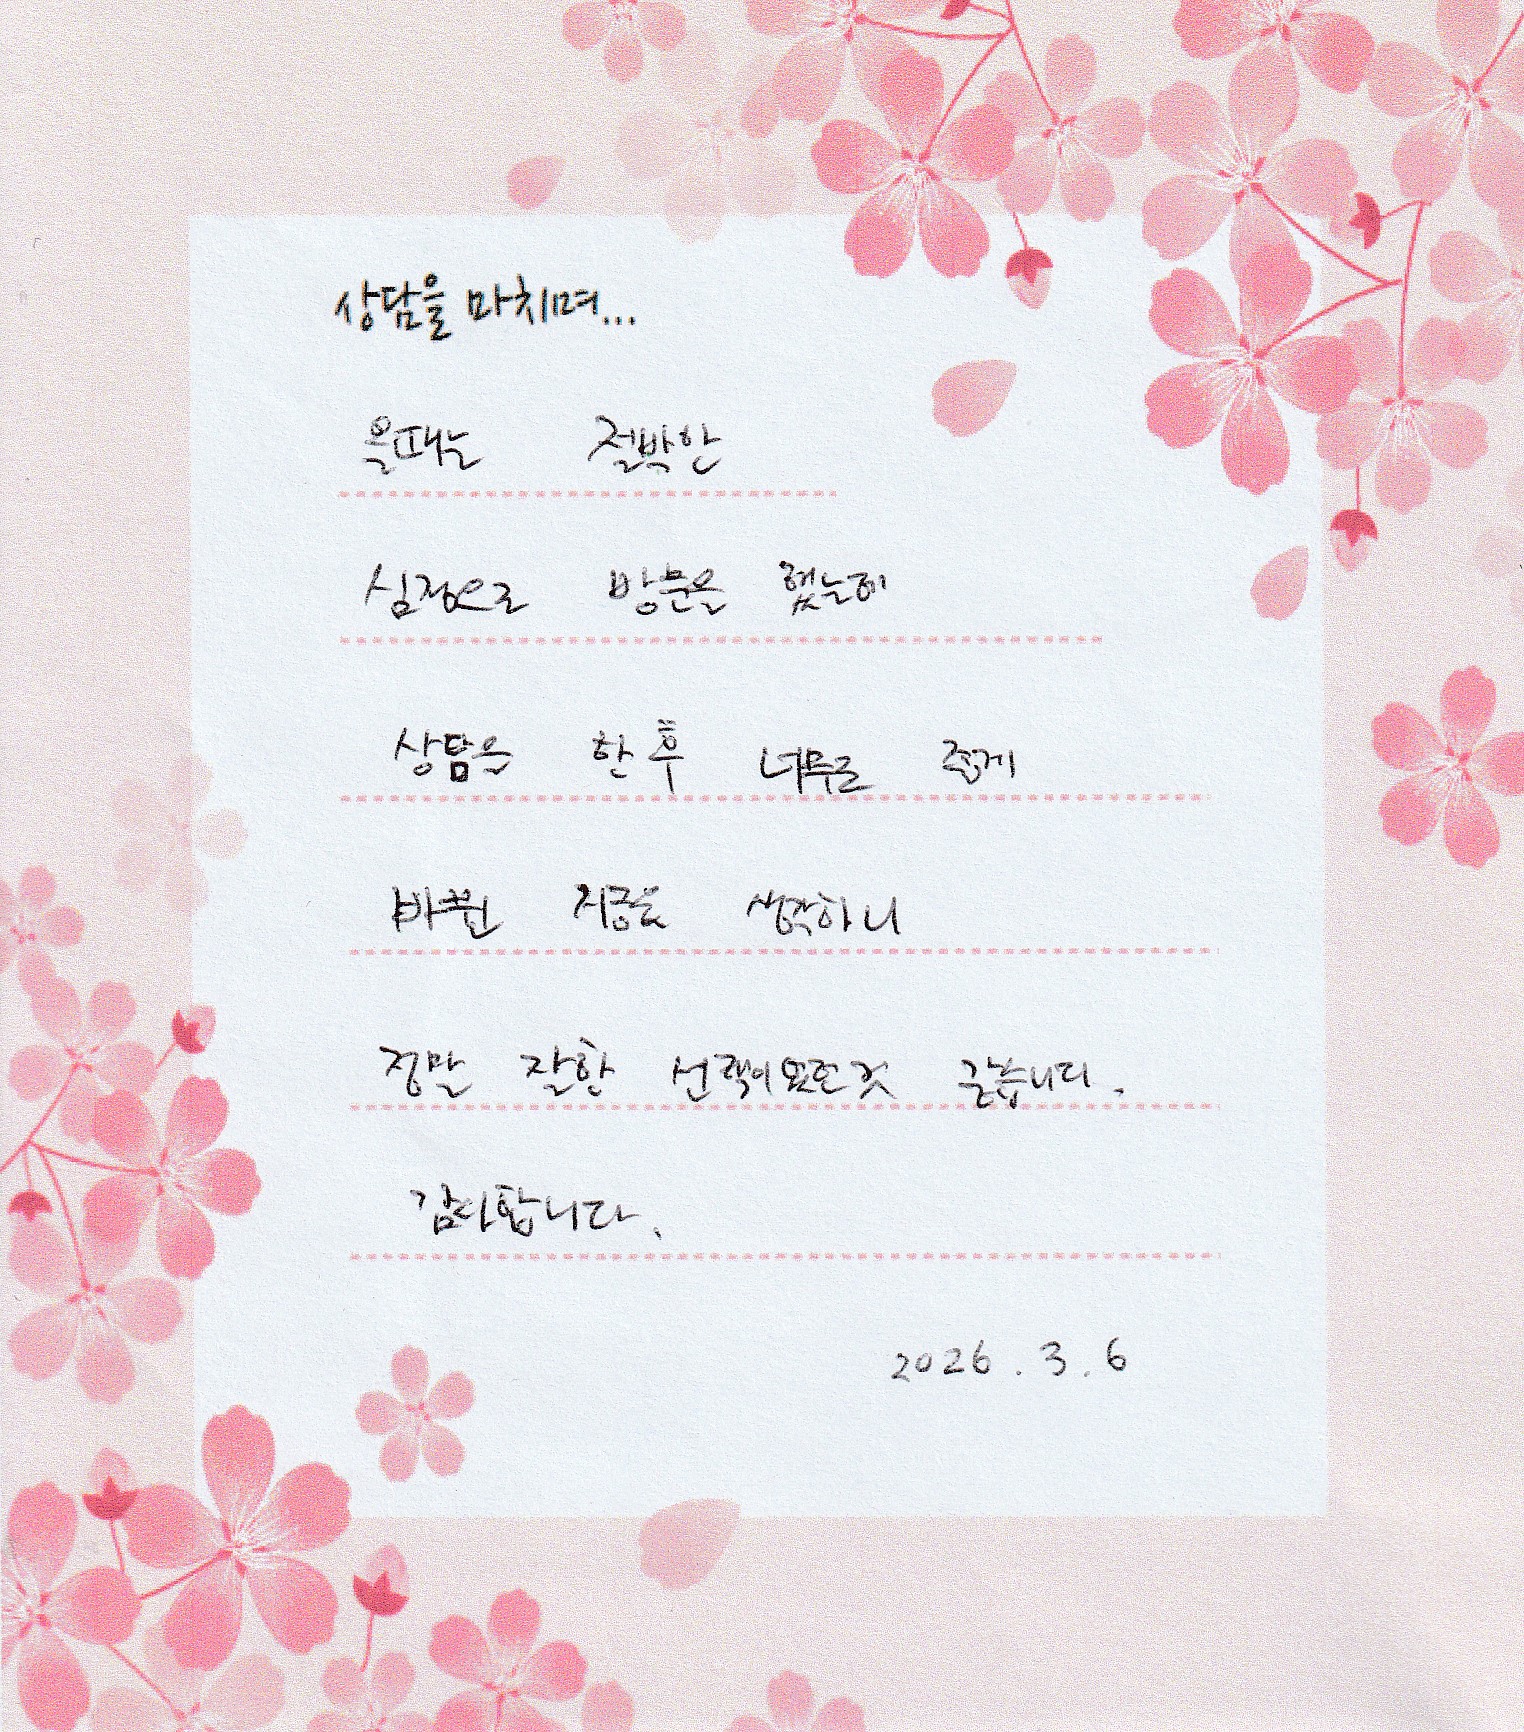 상담을 마치며...
올때는 절박한
심정으로 방문을 했는데
상담을 한 후 너무도 좋게
바뀐 지금을 생각하니
정말 잘한 선택이였던것 같습니다.
감사합니다.
2026.3.6